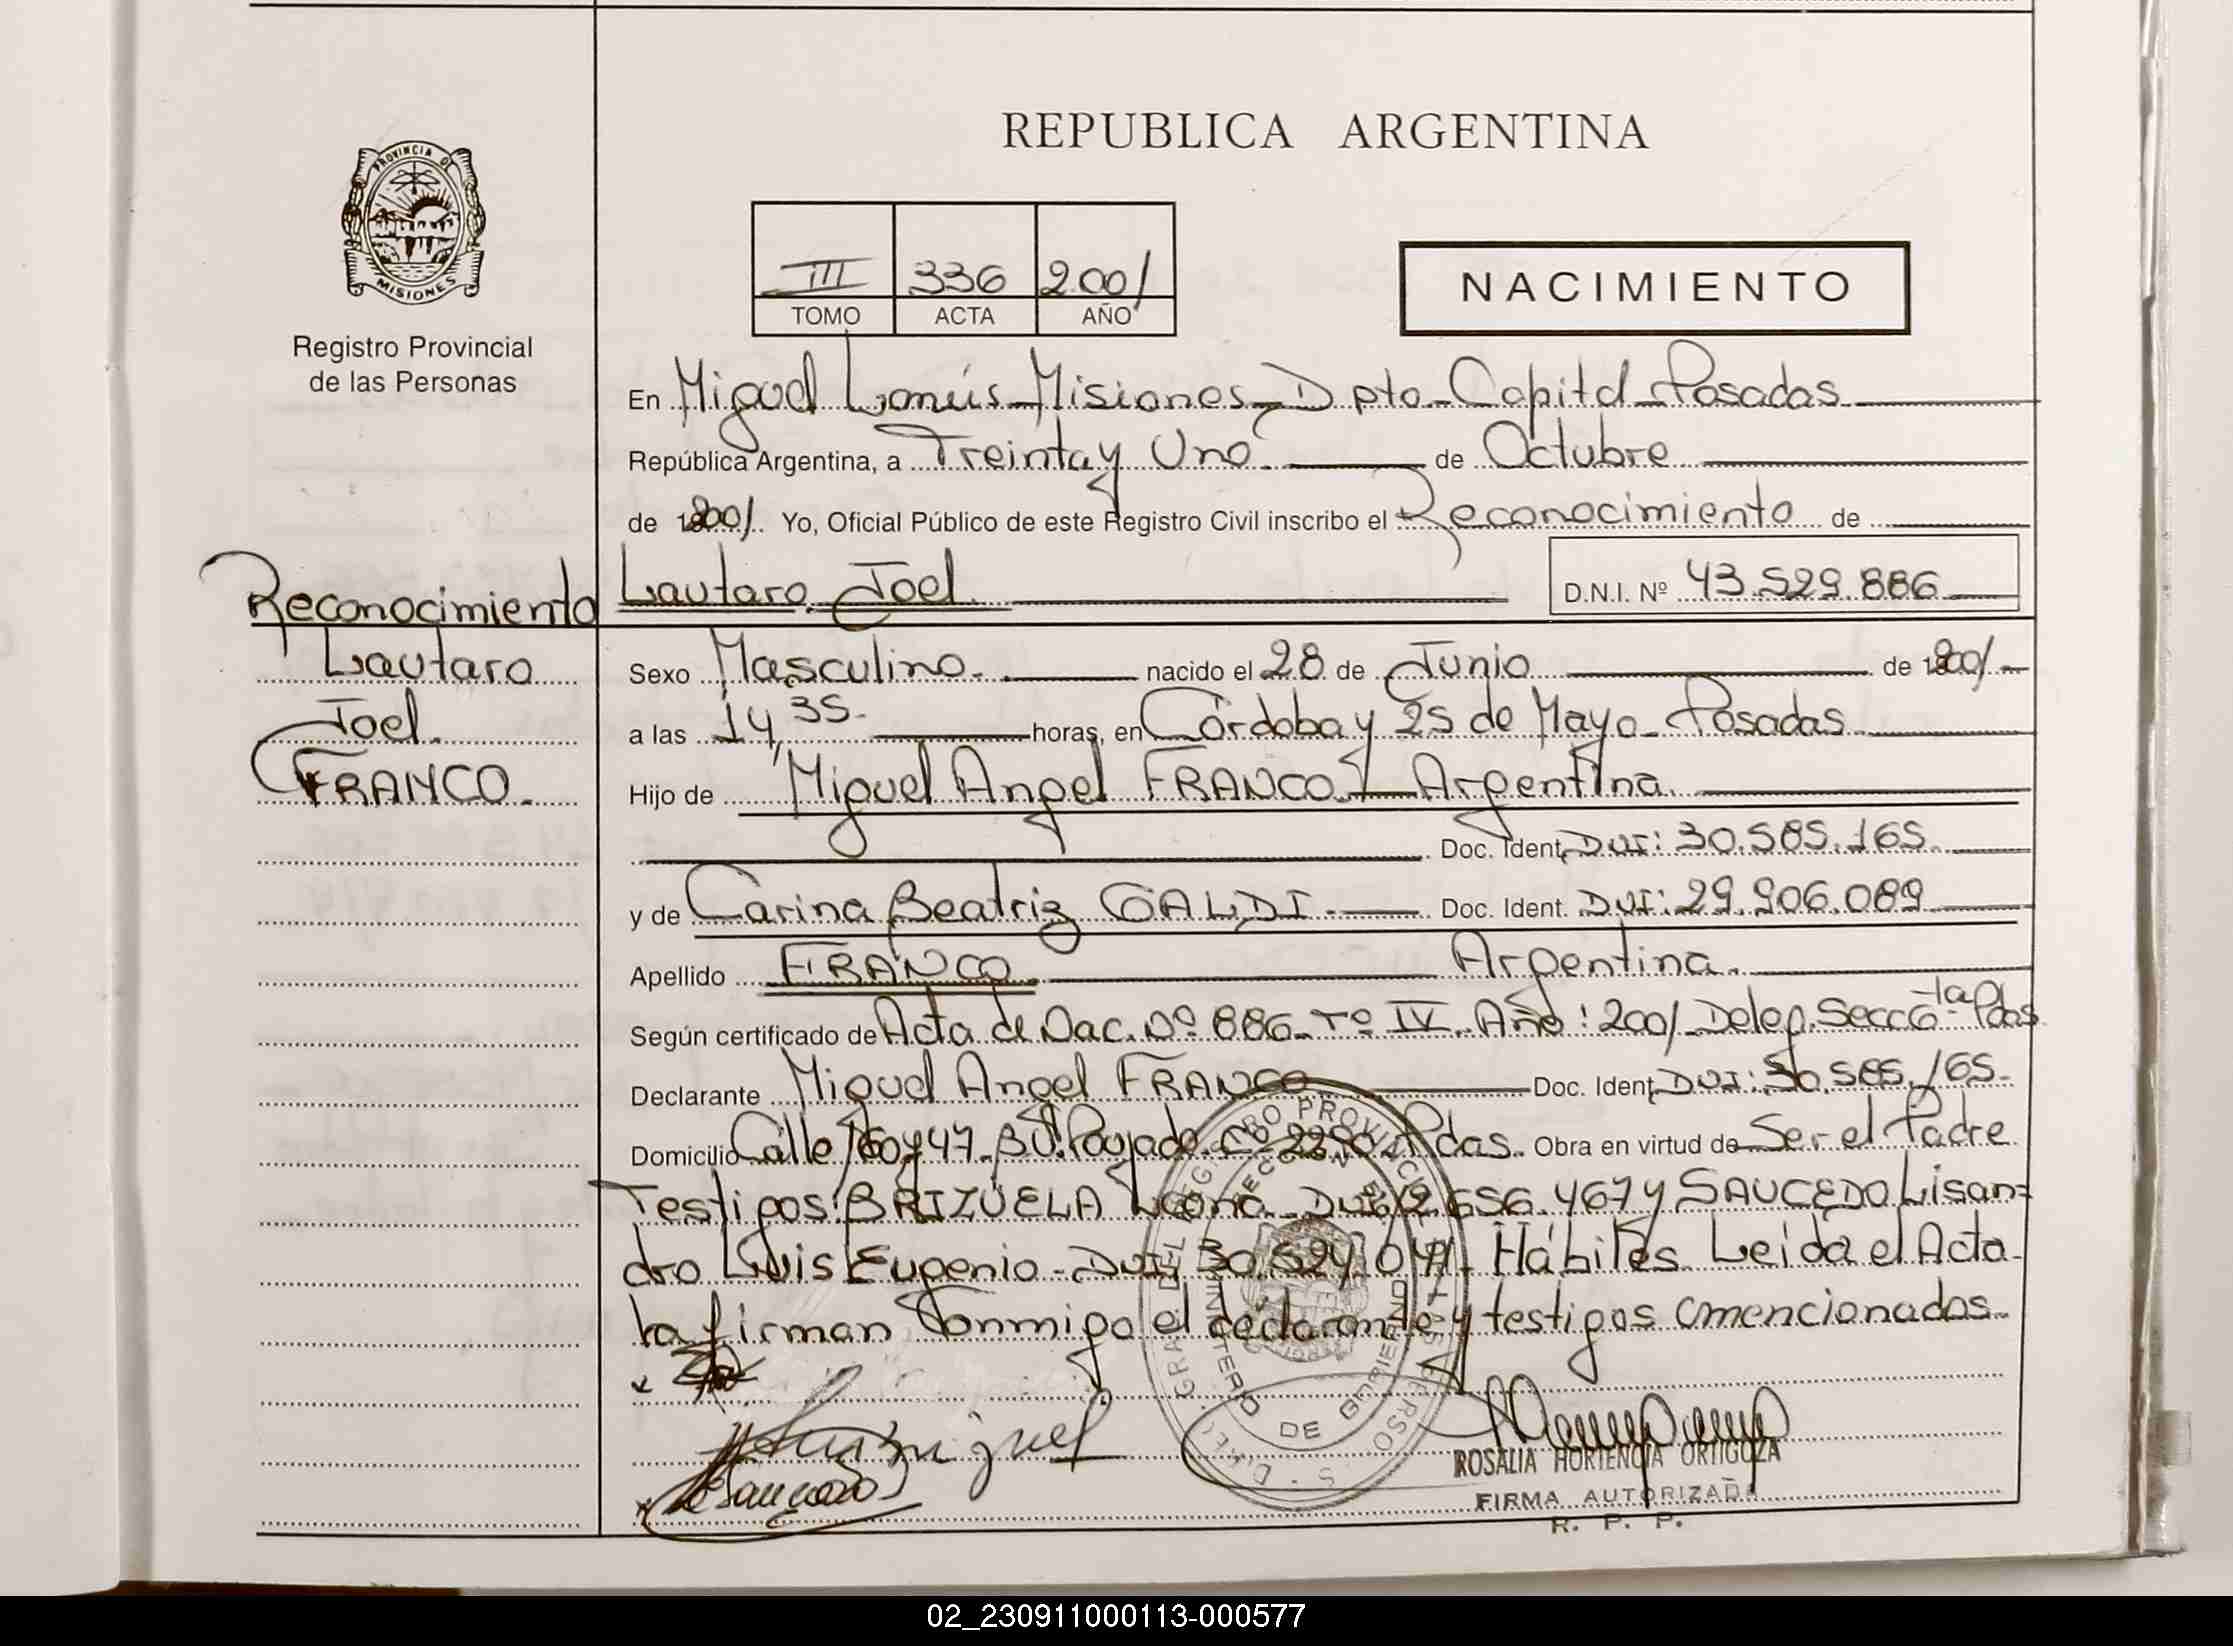 REPUBLICA ARGENTINA
PROVINCIA DE
MISIONES
Registro Provincial
de las Personas
III 336 2001
TOMO ACTA AÑO
NACIMIENTO
En Miguel Lanús - Misiones - Dpto - Capital - Posadas
República Argentina, a Treinta y Uno de Octubre
de 2001 Yo, Oficial Público de este Registro Civil inscribo el Reconocimiento de
Lautaro Joel D.N.I. Nº 43.529.886
Reconocimiento
Lautaro
Joel
FRANCO
Sexo Masculino nacido el 28 de Junio de 2001
a las 14,35 horas, en Córdoba y 25 de Mayo - Posadas
Hijo de Miguel Angel FRANCO Argentina
Doc. Ident. DNI: 30.585.165
y de Carina Beatriz GALDI Doc. Ident. DNI: 29.906.089
Apellido FRANCO Argentina
Según certificado de Acta de Nac. Nº 886 - Tº IV - Año: 2001 - Deleg. Secc 6 - 1a Pdas
Declarante Miguel Angel FRANCO Doc. Ident. DNI: 30.585.165
Domicilio Calle 160 y 47 - Bº Poujade - Cº 2290 - Pdas. Obra en virtud de Ser el Padre
Testigos: BRIZUELA DNI 656.467 y SAUCEDO Lisan=
dro Luis Eugenio - DNI 30.524.041 - Hábiles. Leída el Acta -
la firman Conmigo el declarante y testigos amencionados.
miguel
Saucedo
REGISTRO PROVINCIAL DE LAS PERSONAS
MINISTERIO DE GOBIERNO
ROSALIA HORTENCIA ORTIGOZA
FIRMA AUTORIZADA
R. P. P.
02_230911000113-000577